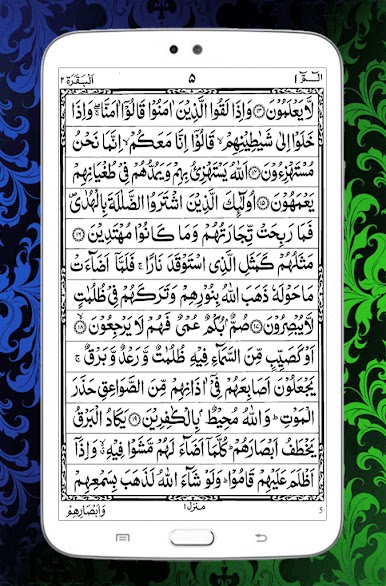 الٓمّٓ ١ ٥ اَلْبَقَرَة ٢
لَّا يَعْلَمُوْنَ ﴿۱۳﴾ وَاِذَا لَقُوا الَّذِيْنَ اٰمَنُوْا قَالُوْٓا اٰمَنَّا ۖۚ وَاِذَا
خَلَوْا اِلٰى شَيٰطِيْنِهِمْ ۙ قَالُوْٓا اِنَّا مَعَكُمْ ۙ اِنَّمَا نَحْنُ
مُسْتَهْزِءُوْنَ ﴿۱۴﴾ اَللّٰهُ يَسْتَهْزِئُ بِهِمْ وَيَمُدُّهُمْ فِيْ طُغْيَانِهِمْ
يَعْمَهُوْنَ ﴿۱۵﴾ اُولٰٓئِكَ الَّذِيْنَ اشْتَرَوُا الضَّلٰلَةَ بِالْهُدٰى ۪
فَمَا رَبِحَتْ تِّجَارَتُهُمْ وَمَا كَانُوْا مُهْتَدِيْنَ ﴿۱۶﴾
مَثَلُهُمْ كَمَثَلِ الَّذِى اسْتَوْقَدَ نَارًا ۚ فَلَمَّآ اَضَآءَتْ
مَا حَوْلَهٗ ذَهَبَ اللّٰهُ بِنُوْرِهِمْ وَتَرَكَهُمْ فِيْ ظُلُمٰتٍ
لَّا يُبْصِرُوْنَ ﴿۱۷﴾ صُمٌّۢ بُكْمٌ عُمْيٌ فَهُمْ لَا يَرْجِعُوْنَ ﴿۱۸﴾
اَوْ كَصَيِّبٍ مِّنَ السَّمَآءِ فِيْهِ ظُلُمٰتٌ وَّرَعْدٌ وَّبَرْقٌ ۚ
يَجْعَلُوْنَ اَصَابِعَهُمْ فِيْٓ اٰذَانِهِمْ مِّنَ الصَّوَاعِقِ حَذَرَ
الْمَوْتِ ؕ وَاللّٰهُ مُحِيْطٌۢ بِالْكٰفِرِيْنَ ﴿۱۹﴾ يَكَادُ الْبَرْقُ
يَخْطَفُ اَبْصَارَهُمْ ؕ كُلَّمَآ اَضَآءَ لَهُمْ مَّشَوْا فِيْهِ ۙ وَاِذَآ
اَظْلَمَ عَلَيْهِمْ قَامُوْا ؕ وَلَوْ شَآءَ اللّٰهُ لَذَهَبَ بِسَمْعِهِمْ
وَاَبْصَارِهِمْ منزل ١ 5